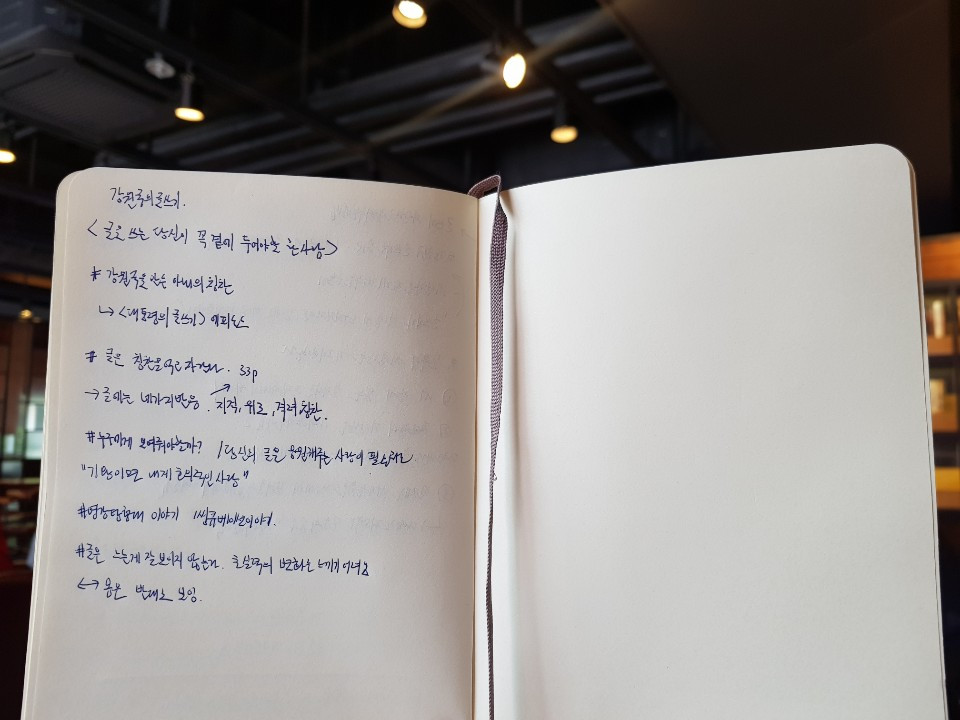 강원국의 글쓰기.
<글을 쓰는 당신이 꼭 곁에 두어야할 한 사람>
# 강원국을 만든 아내의 칭찬
↳ <대통령의 글쓰기> 에피소드
# 글은 칭찬을 먹고 자란다. 33p
→ 글에는 네가지반응. 지적, 위로, 격려, 칭찬.
#누구에게 보여줘야할까? / 당신의 글은 응원해주는 사람이 필요해요
"기왕이면 내게 호의적인 사람"
이야기
#글은 느는게 잘 보이지 않는다.
↔ 반대로 보임.